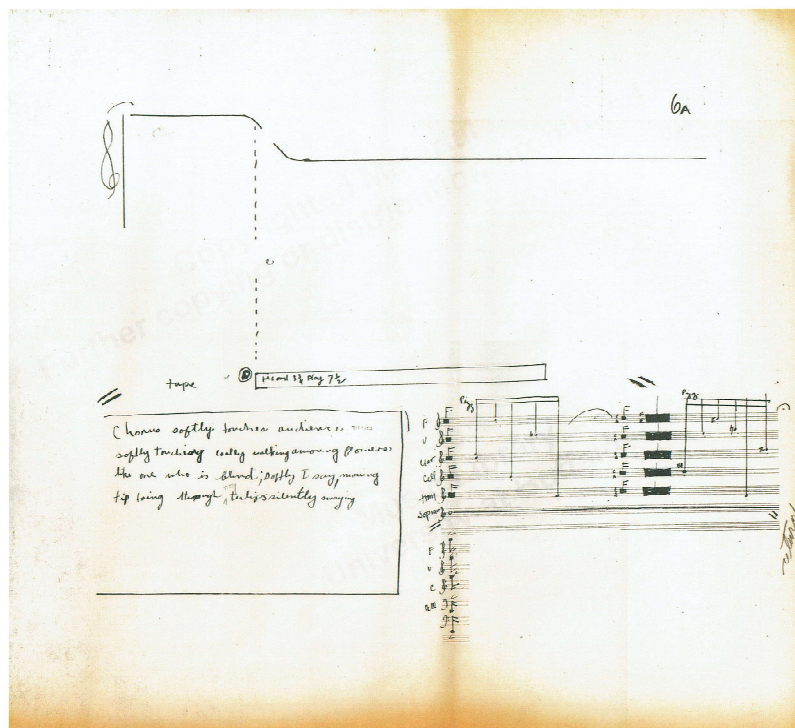 6A
tape
Record 3¾ Play 7½
Chorus softly touches audience
softly touching walking among flowers
like one who is blind; softly I say, moving
tip toeing through tulips silently singing
Pizz
Pizz
F
V
Cell
Soprano
F
V
C
Cell